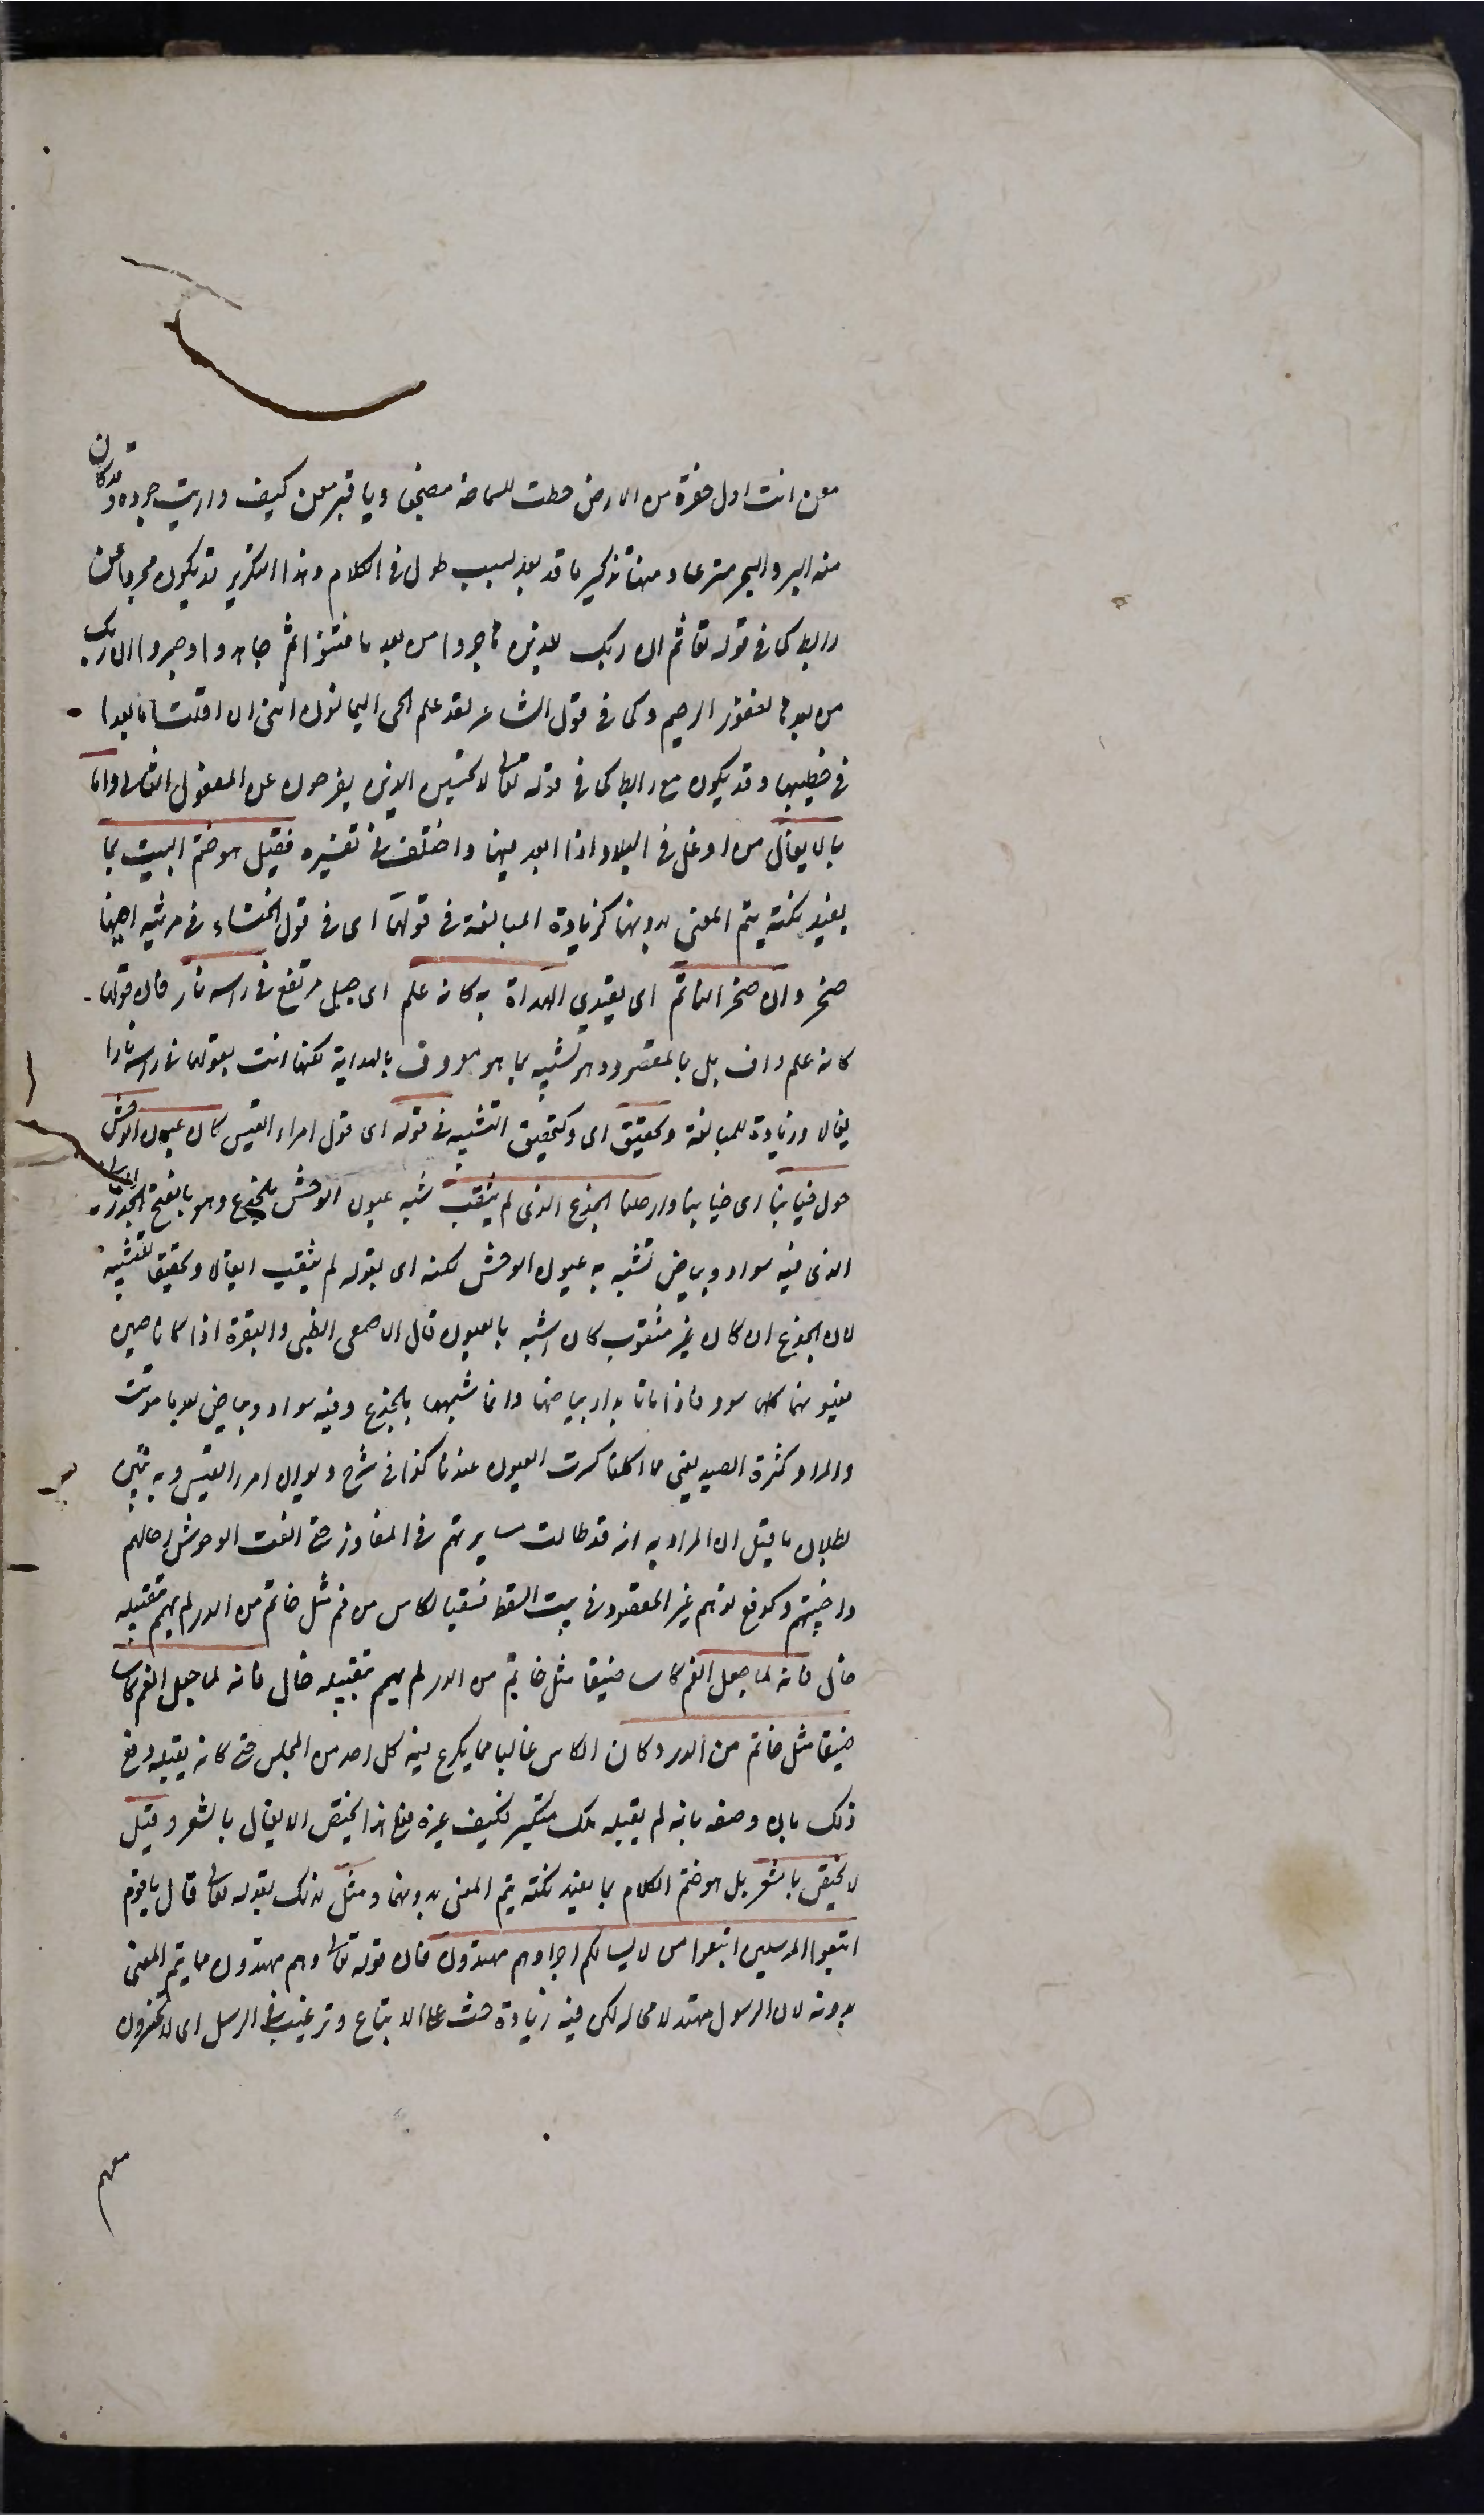 معن انت اول حفرة من الارض حطت للسماحة مضجعا ويا قبر معن كيف واريت جوده وقد كان
منه البر والبحر مترعا ومنها تذكير ما قد بعد بسبب طول في الكلام وهذا التكرير قد يكون مجردا عن
رابط كما في قوله تعا ثم ان ربك للذين هاجروا من بعد ما فتنوا ثم جاهدوا وصبروا ان ربك
من بعدها لغفور رحيم وكما في قول الشاعر لقد علم الحي اليمانون انني اذا قلت اما بعد
في خطيبها وقد يكون مع رابط كما في قوله تعالى لا تحسبن الذين يفرحون عن المفعول الثاني واما
بالايغال من اوغل في البلاد اذا ابعد فيها واختلف في تفسيره فقيل هو ختم البيت بما
يفيد نكتة يتم المعنى بدونها كزيادة المبالغة في قولها اى في قول الخنساء في مرثية اخيها
صخر وان صخرا لتاتم اى يقتدي الهداة به كانه علم اى جبل مرتفع في راسه نار فان قولها
كانه علم واف بل بالمقصود وهو تشبيه بما هو معروف بالهداية لكنها اتت بقولها في راسه نار ا
يغالا وزيادة للمبالغة وتحقيق اى وكتحقيق التشبيه في قوله اى قول امراء القيس كان عيون الوحش
حول خبائنا اى خيامنا وارحلنا الجزع الذى لم يثقب شبه عيون الوحش بالجزع وهو بالفتح الخرز اليماني
الذى فيه سواد وبياض تشبه به عيون الوحش لكنه اى بقوله لم يثقب ايغالا وتحقيقا للتشبيه
لان الجزع ان كان غير مثقوب كان اشبه بالعيون قال الاصمعى الظبى والبقرة اذا كانا حيين
فعيونهما كلها سود فاذا ماتا بدا بياضها وانما شبهها بالجزع وفيه سواد وبياض بعد ما موتت
والمراد كثرة الصيد يعني مما اكلنا كثرت العيون عندنا كذا في شرح ديوان امرء القيس وبه تبين
بطلان ما قيل ان المراد به انه قد طالت مسايرتهم في المفاوز حتى الفت الوحوش رحالهم
واخبيتهم وكدفع توهم غير المقصود في بيت السقط فسقيا لكاس من فم مثل خاتم من الدر لم يهم بتقبيله
خال فانه لما جعل الفم كاسا ضيقا مثل خاتم من الدر لم يهم بتقبيله خال فانه لما جعل الفم كاسا
ضيقا مثل خاتم من الدر وكان الكاس غالبا مما يكرع فيه كل احد من المجلس حتى كانه يقبله دفع
ذلك بان وصفه بانه لم يقبله ملك متكبر فكيف غيره فعلى هذا يختص الايغال بالشعر وقيل
لا يختص بالشعر بل هو ختم الكلام بما يفيد نكتة يتم المعنى بدونها ومثل لذلك بقوله تعالى قال يا قوم
اتبعوا المرسلين اتبعوا من لا يسالكم اجرا وهم مهتدون فان قوله تعالى وهم مهتدون مما يتم المعنى
بدونه لان الرسول مهتد لا محالة لكن فيه زيادة حث على الاتباع وترغيب في الرسل اى لا تخسرون
معهم